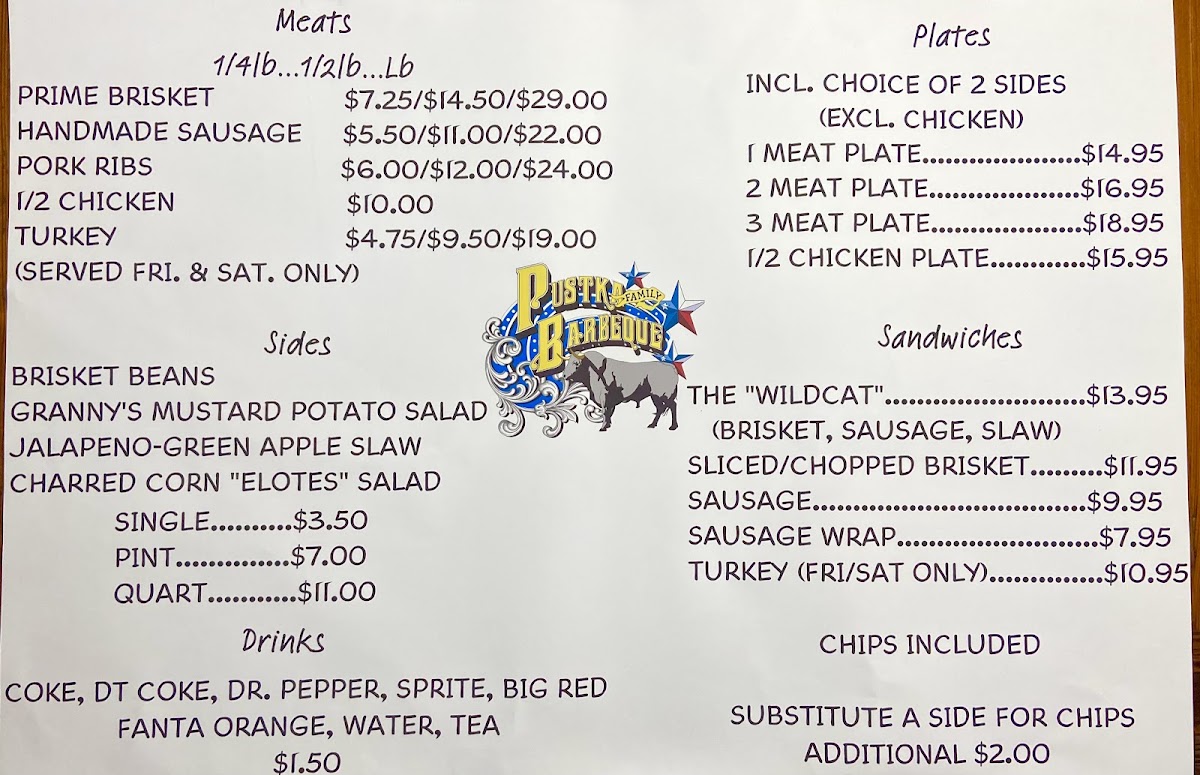 Meats
1/4lb...1/2lb...Lb
PRIME BRISKET $7.25/$14.50/$29.00
HANDMADE SAUSAGE $5.50/$11.00/$22.00
PORK RIBS $6.00/$12.00/$24.00
1/2 CHICKEN $10.00
TURKEY $4.75/$9.50/$19.00
(SERVED FRI. & SAT. ONLY)
Sides
BRISKET BEANS
GRANNY'S MUSTARD POTATO SALAD
JALAPENO-GREEN APPLE SLAW
CHARRED CORN "ELOTES" SALAD
SINGLE..........$3.50
PINT..............$7.00
QUART...........$11.00
Drinks
COKE, DT COKE, DR. PEPPER, SPRITE, BIG RED
FANTA ORANGE, WATER, TEA
$1.50
PUSTKA FAMILY
BARBEQUE
Plates
INCL. CHOICE OF 2 SIDES
(EXCL. CHICKEN)
1 MEAT PLATE......................$14.95
2 MEAT PLATE.....................$16.95
3 MEAT PLATE.....................$18.95
1/2 CHICKEN PLATE.............$15.95
Sandwiches
THE "WILDCAT"...........................$13.95
(BRISKET, SAUSAGE, SLAW)
SLICED/CHOPPED BRISKET..........$11.95
SAUSAGE.....................................$9.95
SAUSAGE WRAP...........................$7.95
TURKEY (FRI/SAT ONLY)................$10.95
CHIPS INCLUDED
SUBSTITUTE A SIDE FOR CHIPS
ADDITIONAL $2.00